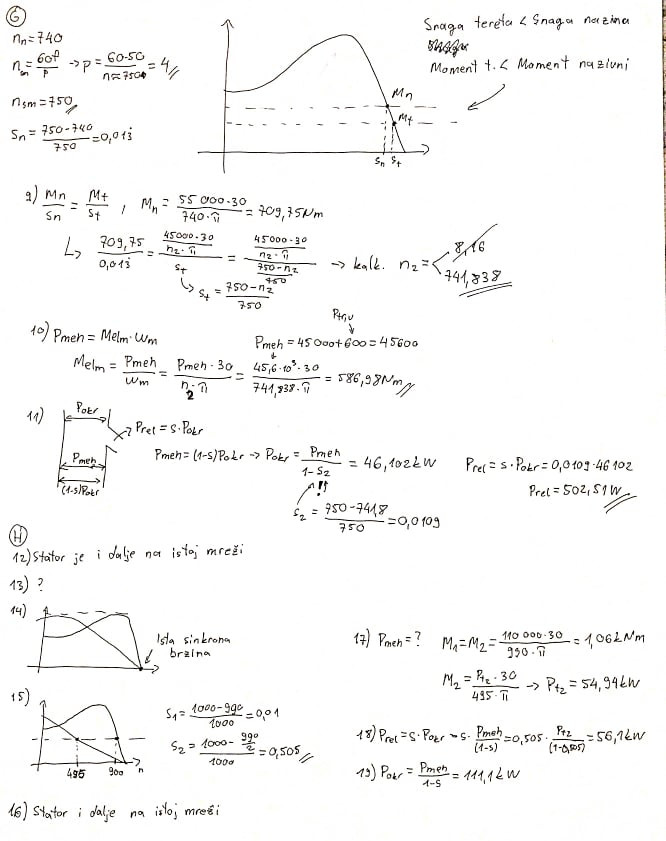 G
n_n = 740
n_sn = 60f/p → p = 60·50/n≈750 = 4
n_sm = 750
s_n = 750-740/750 = 0,013̇
Snaga tereta < Snaga nazivna
Moment t. < Moment nazivni
Mn
Mt
Sn St
9) Mn/Sn = Mt/St , Mn = 55 000·30/740·π = 709,75Nm
↳ 709,75/0,013̇ = (45000·30/n2·π)/St = (45000·30/n2·π)/(750-n2/750) → kalk. n2 = < 8,16
741,838
↳ St = 750-n2/750
10) Pmeh = Melm·ωm
Ptr,v
Pmeh = 45000+600 = 45600
Melm = Pmeh/ωm = Pmeh·30/n2·π = 45,6·10³·30/741,838·π = 586,98Nm
11) Pokr
Prel = s·Pokr
Pmeh
(1-s)Pokr
Pmeh = (1-s)Pokr → Pokr = Pmeh/1-S2 = 46,102kW
Prel = s·Pokr = 0,0109·46102
Prel = 502,51W
!!
S2 = 750-741,8/750 = 0,0109
H
12) Stator je i dalje na istoj mreži
13) ?
14)
Ista sinkrona
brzina
15)
495 900 n
S1 = 1000-990/1000 = 0,01
S2 = 1000-990/2/1000 = 0,505
16) Stator i dalje na istoj mreži
17) Pmeh = ? M1 = M2 = 110 000·30/990·π = 1,06kNm
M2 = Pt2·30/495·π → Pt2 = 54,94kW
18) Prel = s·Pokr = s·Pmeh/(1-s) = 0,505·Pt2/(1-0,505) = 56,1kW
19) Pokr = Pmeh/1-s = 111,1kW